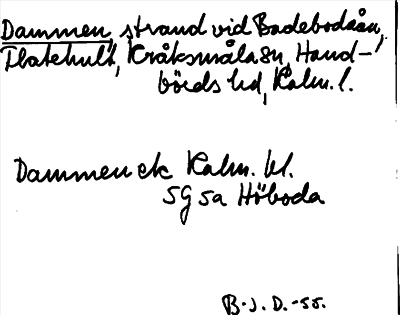 Dammen, strand vid Badebodaån,
Flatehult, Kråksmåla sn, Hand-
börds hd, Kalm. l.
Dammen ek Kalm. bl.
5G 5a Höboda
B.J.D.-55.